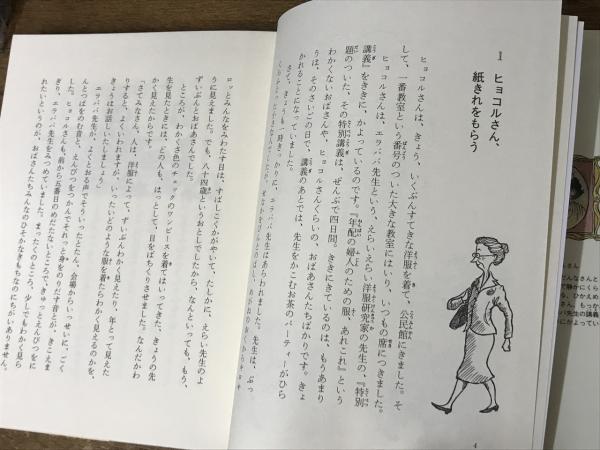 1 ヒョコルさん、
紙きれをもらう
ヒョコルさんは、きょう、いくぶんすてきな洋服を着て、公民館にきました。そ
して、一番教室という番号のついた大きな教室にはいり、いつもの席につきました。
ヒョコルさんは、エラババ先生という、えらいえらい洋服研究家の先生の、『特別
講義』をききに、かよっているのです。『年配の婦人のための服、あれこれ』という
題のついた、その特別講義は、ぜんぶで四日間。ききにきているのは、もうあまり
わかくないおばさんや、ヒョコルさんくらいの、おばあさんたちばかりです。きょ
うは、そのさいごの日で、講義のあとでは、先生をかこむお茶のパーティーがひら
かれることになっていました。
さて、きょうも一時きっかりに、エラババ先生はあらわれました。先生は、ぶっ
4
ロッとみんなをみわたす目は、すばしこくかがやいて、たしかに、えらい先生のよ
うに見えました。でも、八十四歳というおとしでしたから、なんといっても、もう、
ずいぶんとおばあさんでした。
ところが、わかくさ色のチェックのワンピースを着てはいってきた、きょうの先
生を見たときには、どの人も、はっとして、目をぱちくりさせました。なんだかわ
かく見えたからです。
「さてみなさん。人は、洋服によって、ずいぶんわかく見えたり、年とって見えた
りすると、よくいわれますが、いったいどのような服を着たらわかく見えるのかを、
きょうはお話しいたしましょう」
エラババ先生が、よくとおる声でそういったとたん、会場からいっせいに、ごく
んとつばをのむ音と、えんぴつをつかんでそれっと身をのりだす音とが、きこえま
した。ヒョコルさんも、前から五番目のめだたないところで、きゅっとえんぴつをに
ぎり、エラババ先生をみつめていました。まったくのところ、少しでもわかく見ら
れたいというのが、おばさんたちみんなのひそかなきもちなのにちがいありません。